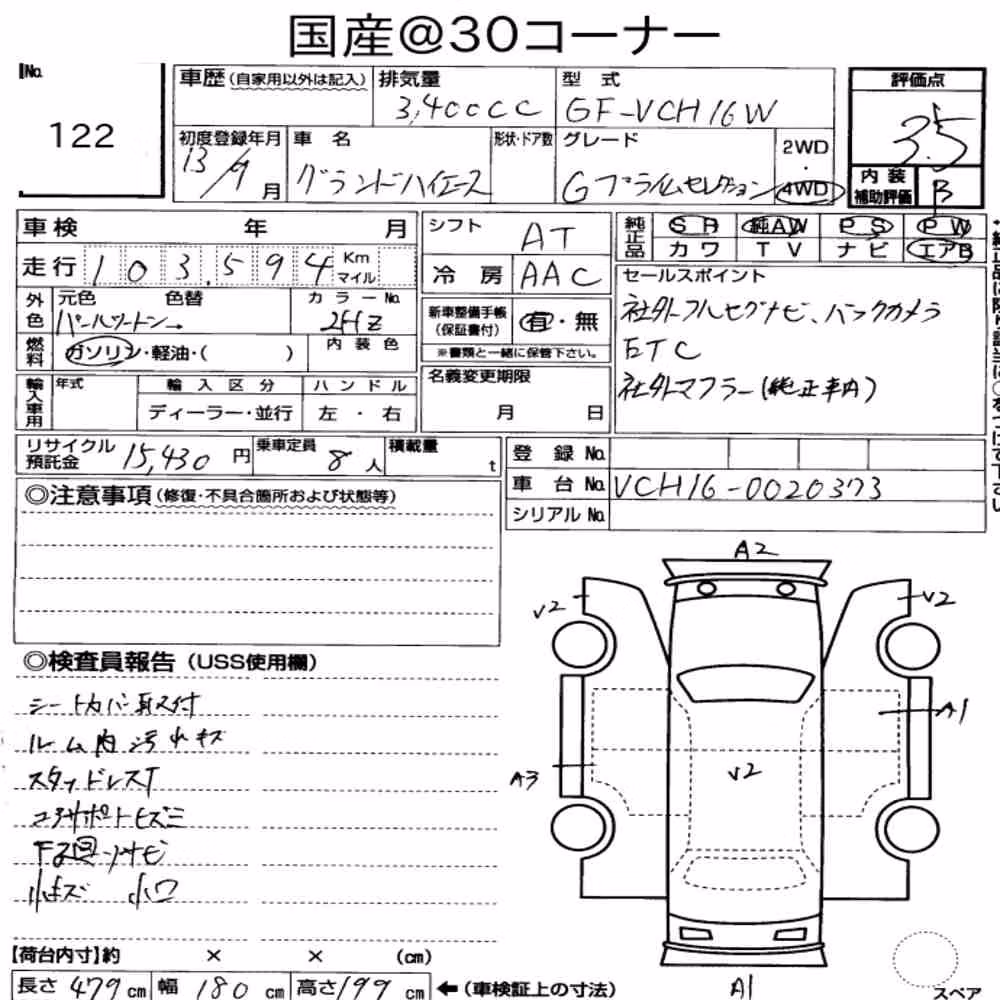 国産@30コーナー
No.
122
車歴(自家用以外は記入)
排気量
3,400CC
型 式
GF-VCH16W
評価点
3.5
初度登録年月
13/9月
車 名
グランドハイエース
形状・ドア数
グレード
Gプライムセレクション
2WD
・
4WD
内装
補助評価
B
車検 年 月
シフト
AT
純正品
SR 純AW PS PW
カワ TV ナビ エアB
走行 103,594 Km
マイル
冷房
AAC
セールスポイント
社外フルセグナビ、バックカメラ
ETC
社外マフラー(純正車内)
外色
元色 色替
パールツートン→
カラーNo.
2HZ
新車整備手帳
(保証書付)
有・無
※書類と一緒に保管下さい。
燃料
ガソリン・軽油・( )
内装色
輸入車用
年式
輸入区分
ディーラー・並行
ハンドル
左・右
名義変更期限
月 日
リサイクル
預託金 15,430円
乗車定員
8人
積載量
t
登録No.
車台No. VCH16-0020373
シリアルNo.
◎注意事項(修復・不具合箇所および状態等)
◎検査員報告(USS使用欄)
ルーム内汚れキズ
スタッドレスT
コアサポートヒズミ
小キズ 小凹
A2
V2
V2
A1
A3
V2
A1
スペア
【荷台内寸】約 × × (cm)
長さ 479cm 幅 180cm 高さ 199cm ←(車検証上の寸法)